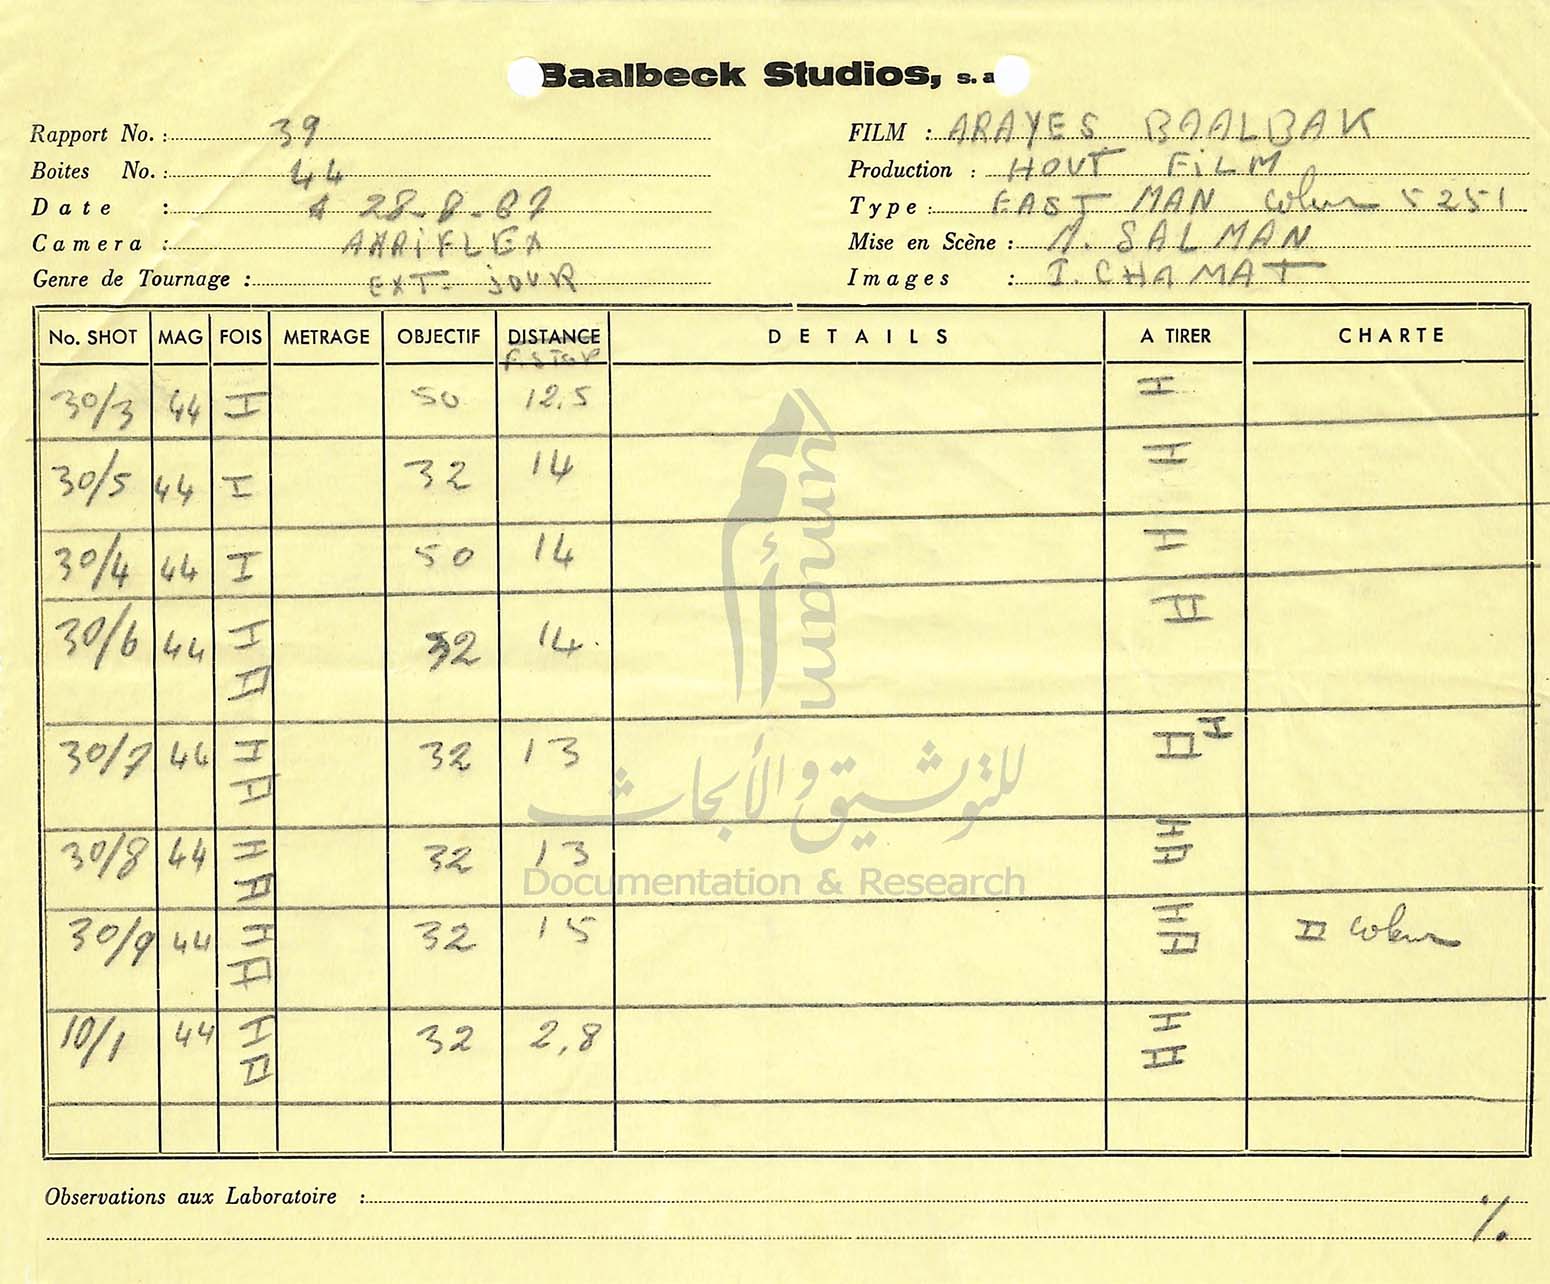 Baalbeck Studios, s. a
Rapport No. : 39
Boites No. : 44
Date : 28-8-67
Camera : ARRiFLEX
Genre de Tournage : EXT- JOUR
FILM : ARAYES BAALBAK
Production : HOUT FiLM
Type : EAST MAN Coleur 5251
Mise en Scène : M. SALMAN
Images : I. CHAMAT
No. SHOT MAG FOIS METRAGE OBJECTIF DISTANCE DETAILS A TIRER CHARTE
F.STOP
30/3 44 I 50 12,5 I
30/5 44 I 32 14 I
30/4 44 I 50 14 I
30/6 44 I II 32 14 II
30/7 44 I II 32 13 II I
30/8 44 I II 32 13 I II
30/9 44 I II 32 15 I II II Coleur
10/1 44 I II 32 2,8 I II
umam
أمم
للتوثيق والأبحاث
Documentation & Research
Observations aux Laboratoire :
%